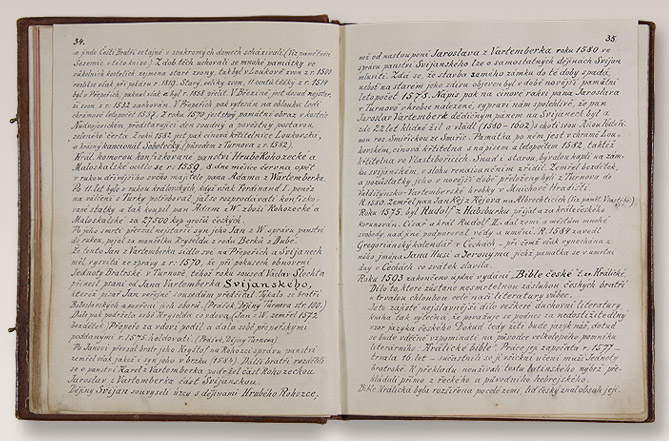 34.
a jinde Čeští Bratří se tajně v soukromých domech scházívali. (Viz pamětosti
Sezemic v této knize.) Z dob těch uchovali se mnohé památky ve
zdejších kostelích, zejména staré zvony, tak byl v Loukově zvon z r. 1550
rozlit však při požáru r. 1819. Starý, veliký zvon, 11 centů těžký z r. 1514
byl v Přepeřích, pukl však a byl r. 1858 přelit. V Březině jest dosud nejstar-
ší zvon z r. 1533 zachován. V Přepeřích pak vytesán na oblouku lodi
chrámové letopočet 1557. Z roku 1570 jest starý památný obraz v kostele
Nudvojovickém, představující den soudný a pověstný postavou
zeleného čerta. Z roku 1552 jest pak cínová křtitelnice Loukovská,
a krásný kancionál Sobotecký, (původem z Turnova z r. 1582)
Král. komorou konfiskované panství Hrubo Rohozecké a
Maloskalské ocitlo se r. 1559. a dne měsíce června opět
v rukou dřívějšího svého majitele pana Adama z Wartemberka.
Po 11. let bylo v rukou královských, když však Ferdinand I. peněz
na válčení s Turky potřeboval, jal se rozprodávati konfisko-
vané statky a tak koupil pan Adam z W. zboží Rohozecké a
Maloskalské za 27.750 kop grošů českých.
Po jeho smrti převzal nejstarší syn jeho Jan z W. správu panství
do rukou, pojal za manželku Kryseldu z rodu Berků z Dubé.
Že tento Jan z Vartemberka sídlo své na Přepeřích a Svijanech
měl, vysvítá ze zprávy z r. 1570, že při pokusech obnovení
Jednoty Bratrské v Turnově, téhož roku soused Václav Šlechta
přinesl psaní od Jana Vartemberka Svijanského,
kteréž písař Jan veřejně sousedům předčítal. Týkalo se bratří
Boleslavských a zavření jich sborů. (Prášek, Dějiny Turnova str. 100.)
Dále pak podržela sobě Kryselda co vdova, (Jan z W. zemřel 1572
bezdětek.) Přepeře za vdoví podíl a dala sobě přepeřskými
poddanými r. 1575 holdovati. (Prášek, Dějiny Turnova)
Po Janovi převzal bratr jeho Kryštof na Rohozci správu panství
zemřel však jakož i syn jeho v brzku (1584). Další bratří rozdělili
se o panství Karel z Vartemberka podržel část Rohozeckou
Jaroslav z Vartemberka část Svijanskou.
Dějiny Svijan souvisejí úzce s dějinami Hrubého Rohozce,
35.
než od nastoupení Jaroslava z Vartemberka roku 1580 ve
správu panství Svijanského lze o samostatných dějinách Svijan
mluviti. Zdá se, že stavba zámku do té doby spadá,
neboť na starém jeho zdivu objeven byl v době novější památní
letopočet 1578. Nápis pak na cínové rakvi pana Jaroslava
v Turnově v hrobce nalezené, vypráví nám spolehlivě, že pan
Jaroslav Vartemberk dědičným panem na Svijanech byl a
zde 22 let klidně žil a vládl (1580–1602) s chotí svou Uliou Hülleri-
nou roz. Smiřickou ze Smiřic. Památka po něm jest v chrámě Lou-
kovském, cínová křtitelnice s nápisem a letopočtem 1582, taktéž
křtitelna ve Vlastibořicích. Snad i starou, bývalou kapli na zám-
ku svijanském, v slohu renaissančním zřídil. Zemřel bezdětek,
a pozůstatky jeho v novější době přeloženy byly z Turnova do
Valdštýnsko-Vartemberské hrobky v Mnichově Hradišti.
R. 1580. Zemřel pan Jan Kéj z Kéjova na Albrechticích (Viz paměť. Vlastibořic)
Roku 1575. byl Rudolf z Habsburku přijat za krále českého
korunován. Císař a král Rudolf II. dal zemi a městům mnohé
svobody, nad jiné podporoval vědy a umění. R. 1584 zavedl
Gregoriánský kalendář v Čechách – při čemž však vynechána z
něho jména Jana Husi a Jeronyma, jichž památka se v určitý
den v Čechách co svátek slavila.
Roku 1593 zakončeno úplné vydání „Bible české" t. zv. Kralické.
Dílo to, které zůstane nesmrtelnou zásluhou českých bratří
a trvalou chloubou celé naší literatury vůbec.
Jest zajisté nejslavnější dílo veškeré duchovní literatury,
mluva tak vytečná, že považuje se podnes za nedostižitedlný
vzor jazyka českého. Dokud tedy žíti bude jazyk náš, dotud
se bude vděčně vzpomínati na původce velkolepého pomníku
literárního, „Králické bible". Práce její započala r. 1577
trvala 16. let – súčastnili se jí všichni učení muži Jednoty
bratrské. K překladu neužívali textu latinského nýbrž pře-
kládali přímo z řeckého a původního hebrejského.
Bible Kralická byla rozšířena po celé zemi, lid český znal obsah její,